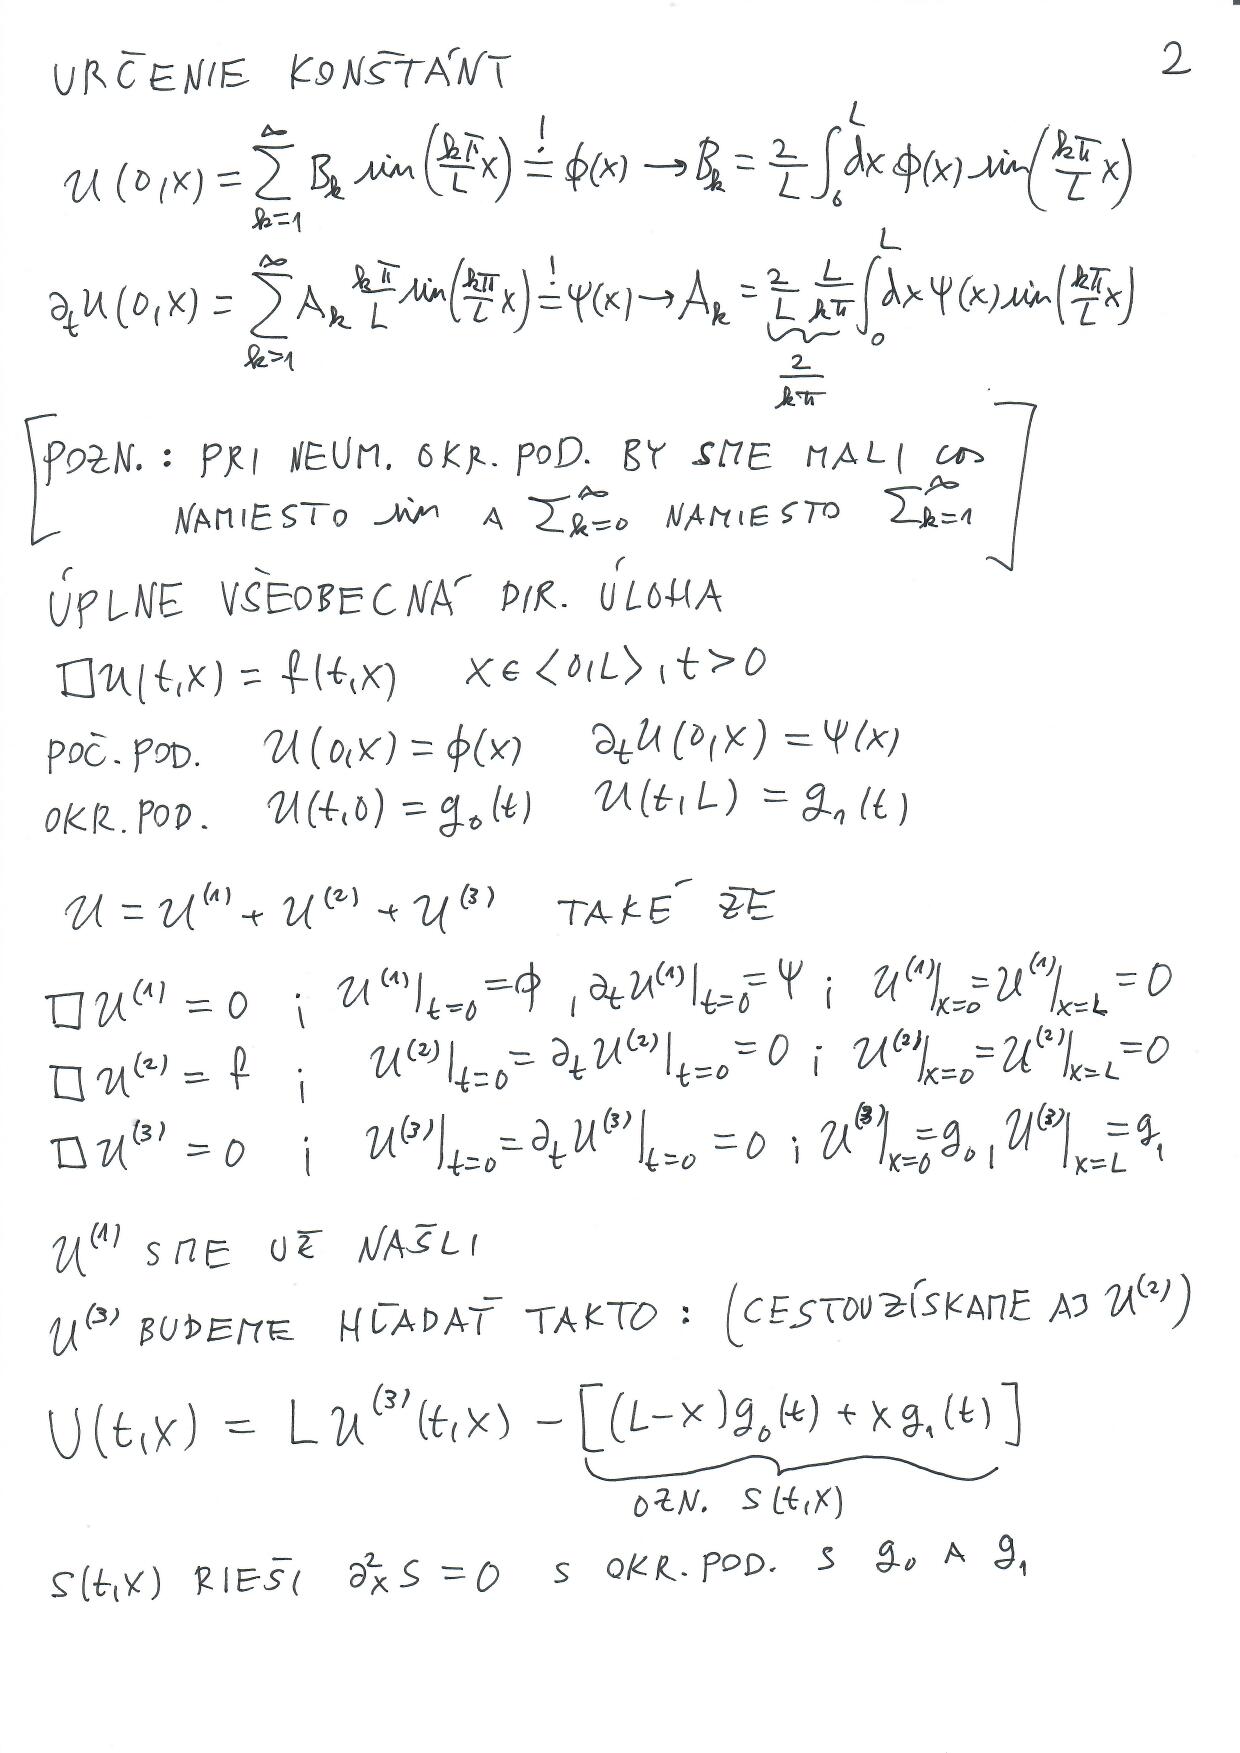 URČENIE KONŠTÁNT 2
u(0,x) = ∑_{k=1}^{∞} B_k sin(kπ/L x) =! ϕ(x) → B_k = 2/L ∫_0^L dx ϕ(x) sin(kπ/L x)
∂_t u(0,x) = ∑_{k=1}^{∞} A_k kπ/L sin(kπ/L x) =! ψ(x) → A_k = 2/L L/kπ ∫_0^L dx ψ(x) sin(kπ/L x)
2/kπ
[POZN.: PRI NEUM. OKR. POD. BY SME MALI cos
NAMIESTO sin A ∑_{k=0}^{∞} NAMIESTO ∑_{k=1}^{∞}]
ÚPLNE VŠEOBECNÁ DIR. ÚLOHA
□u(t,x) = f(t,x) x∈⟨0,L⟩, t>0
POČ. POD. u(0,x) = ϕ(x) ∂_t u(0,x) = ψ(x)
OKR. POD. u(t,0) = g_0(t) u(t,L) = g_1(t)
u = u^(1) + u^(2) + u^(3) TAKÉ ŽE
□u^(1) = 0 ; u^(1)|_{t=0} = ϕ, ∂_t u^(1)|_{t=0} = ψ ; u^(1)|_{x=0} = u^(1)|_{x=L} = 0
□u^(2) = f ; u^(2)|_{t=0} = ∂_t u^(2)|_{t=0} = 0 ; u^(2)|_{x=0} = u^(2)|_{x=L} = 0
□u^(3) = 0 ; u^(3)|_{t=0} = ∂_t u^(3)|_{t=0} = 0 ; u^(3)|_{x=0} = g_0, u^(3)|_{x=L} = g_1
u^(1) SME UŽ NAŠLI
u^(3) BUDEME HĽADAŤ TAKTO: (CESTOU ZÍSKAME AJ u^(2))
U(t,x) = L u^(3)(t,x) − [(L−x)g_0(t) + x g_1(t)]
OZN. S(t,x)
S(t,x) RIEŠI ∂_x^2 S = 0 S OKR. POD. S g_0 A g_1